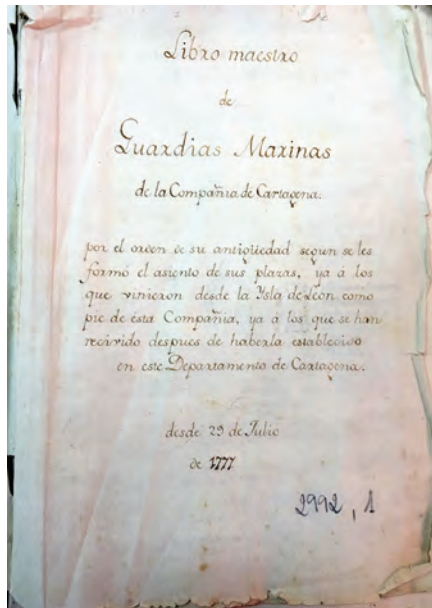 Libro maestro
de
Guardias Marinas
de la Compañia de Cartagena.
por el orden de su antigüedad segun se les
formó el asiento de sus plazas, ya á los
que vinieron desde la Ysla de Leon como
pie de esta Compañia, ya á los que se han
recivido despues de haberla establecido
en este Departamento de Cartagena.
desde 29 de Julio
de 1777
2992, 1